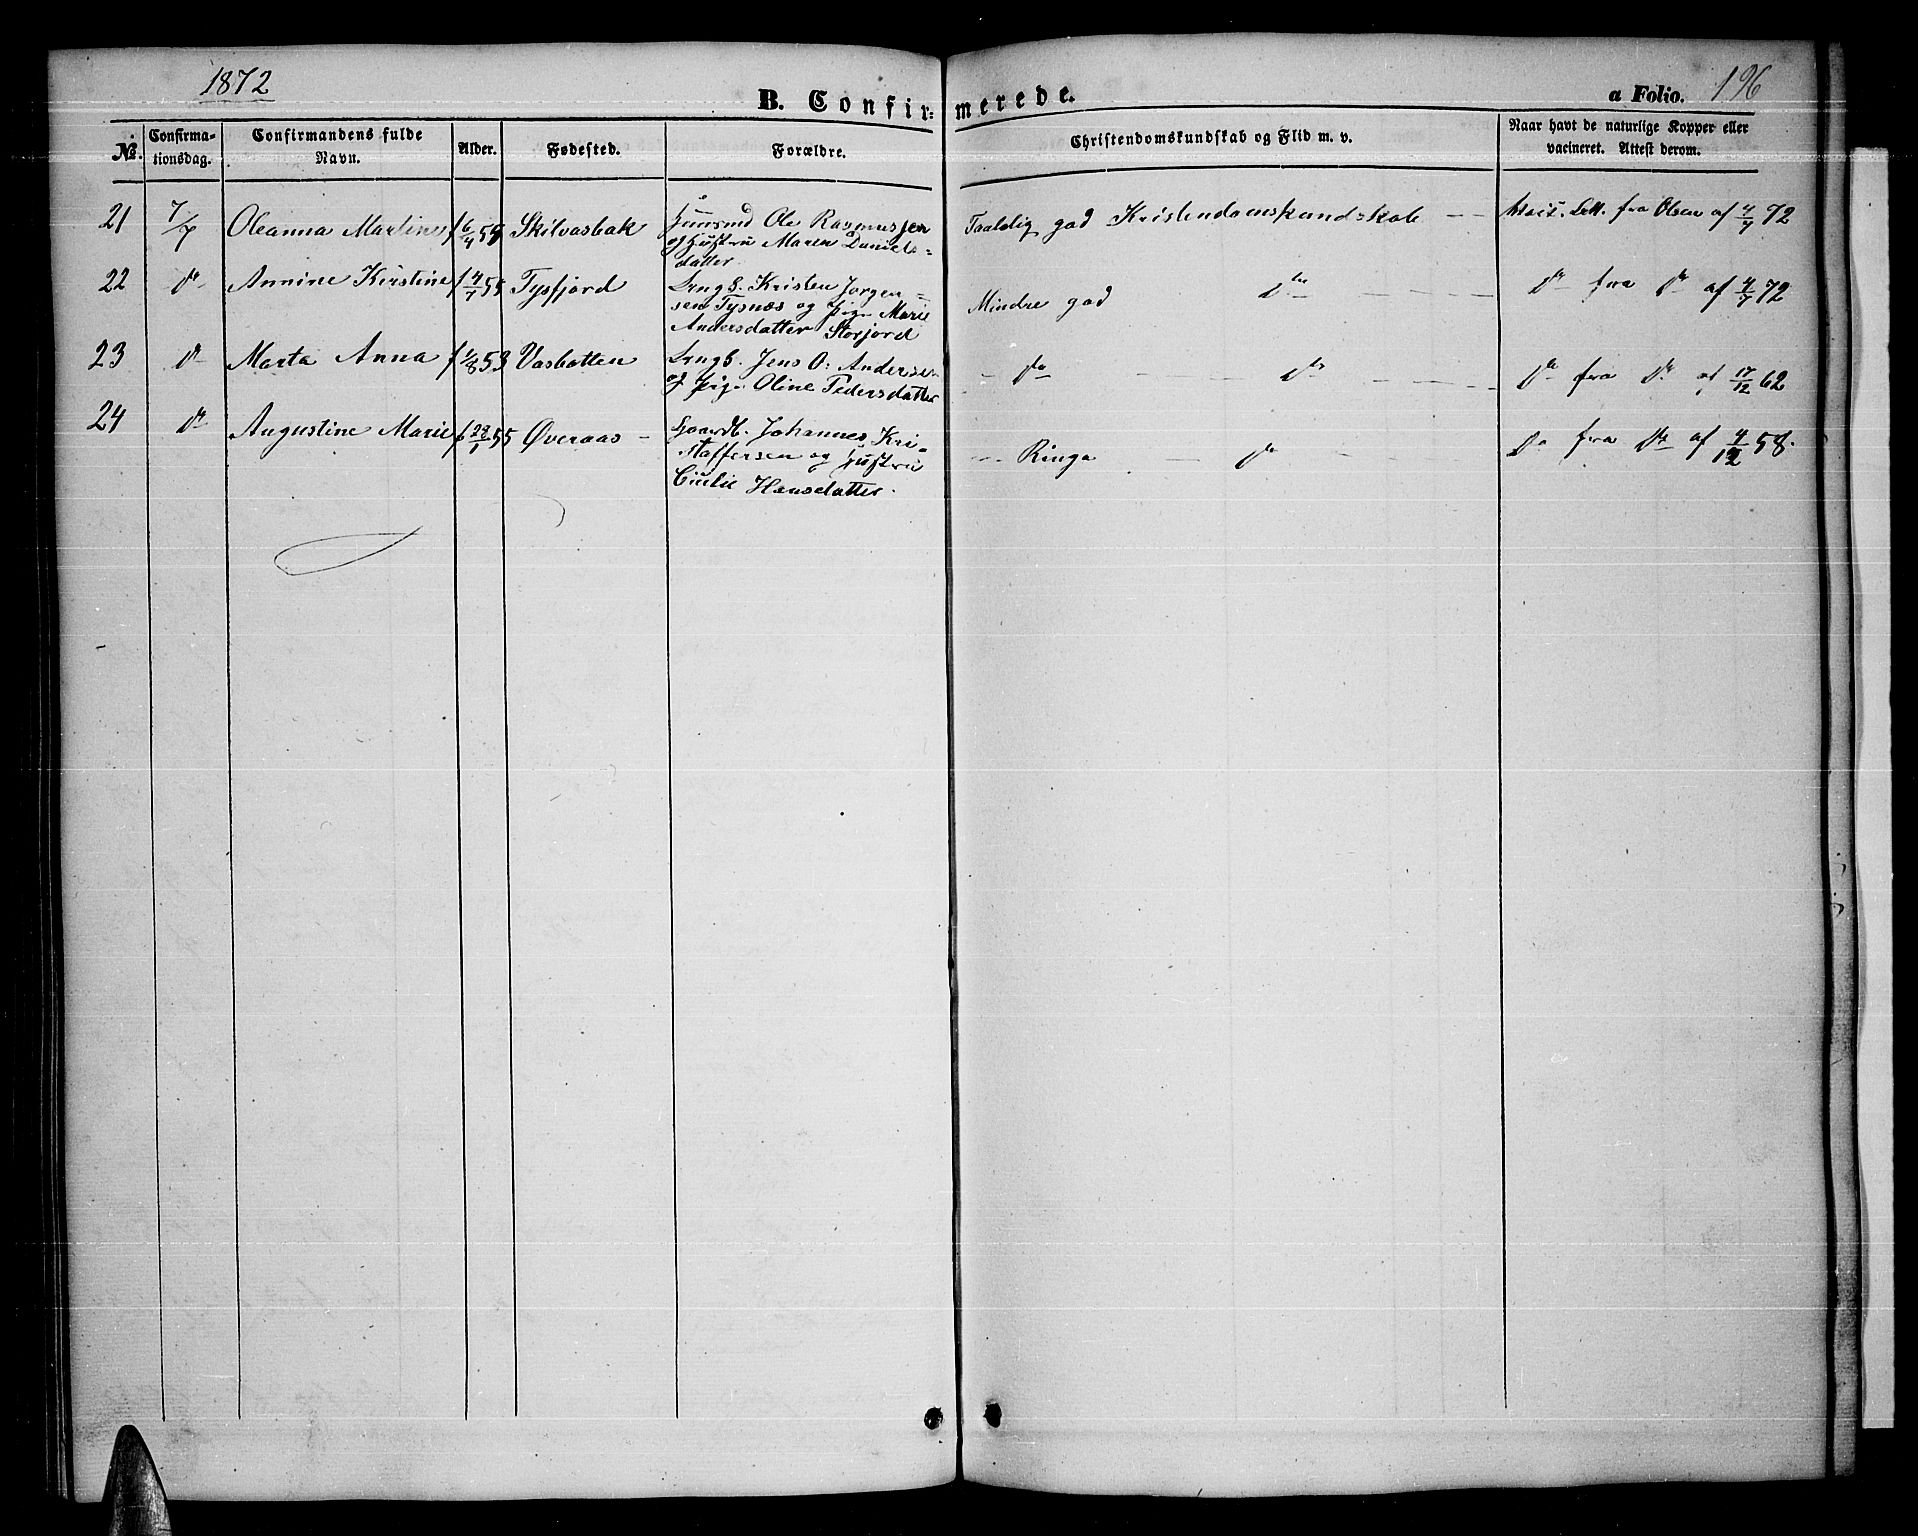 1872
B. Confirmerede.
a Folio. 196
No. Confirmationsdag. Confirmandens fulde Navn. Alder. Fødested. Forældre. Christendomskundskab og Flid m. v. Naar havt de naturlige Kopper eller vacineret. Attest derom.
21 7/7 Oleanna Martine f 6/4 55 Skilvasbak Huusmd Ole Rasmussen
og Hustru Maren Daniels-
datter
Taalelig god Kristendomskundskab - - Attest fra Olsen af 4/7 72
22 do Annine Kirstine f 4/7 55 Tysfjord Ungk. Kristen Jørgen-
sen Tysnæs og pige Marie
Andersdatter Storjord
Mindre god do do fra do af 4/7 72
23 do Marta Anna f 1/8 53 Vasbotten Ungk. Jens O. Andersen
og pige Oline Pedersdatter
do do do fra do af 17/12 62
24 do Augustine Marie f 28/1 55 Øveraas - Gaardb. Johannes Kri-
staffersen og Hustru
Hansdatter.
Ringe do Do fra do af 4/12 58.